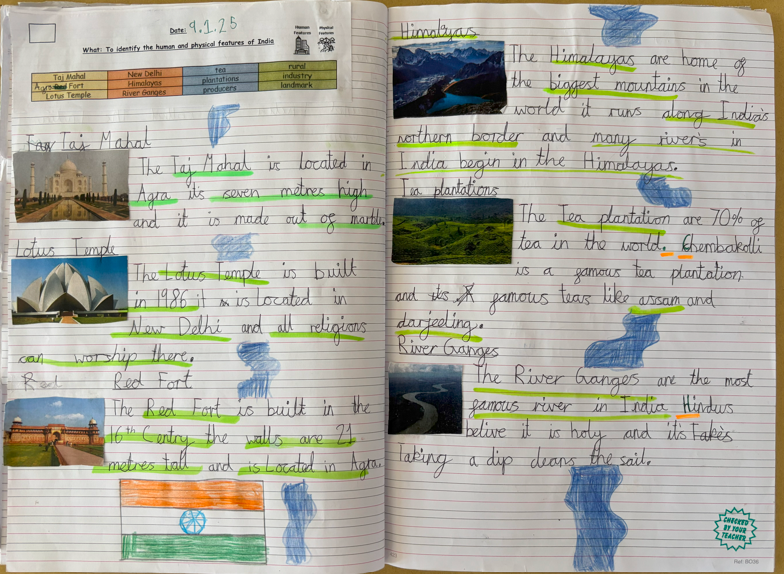 Date: 9.1.25
What: To identify the human and physical features of India
Human Features
Physical Features
Taj Mahal
New Delhi
tea
rural
Agra Fort
Himalayas
plantations
industry
Lotus Temple
River Ganges
producers
landmark
Taj Mahal
The Taj Mahal is located in
Agra its seven metres high
and it is made out of marble.
Lotus Temple
The Lotus Temple is built
in 1986 it is located in
New Delhi and all religions
can worship there.
Red Red Fort
The Red Fort is built in the
16th Centry the walls are 21
metres tall and is located in Agra.
Himalayas
The Himalayas are home of
the biggest mountains in the
world it runs along India's
northern border and many rivers in
India begin in the Himalayas.
Tea plantations
The Tea plantation are 70% of
tea in the world. Chembakolli
is a famous tea plantation
and its famous teas like assam and
darjeeling.
River Ganges
The River Ganges are the most
famous river in India Hindus
belive it is holy and it's Takes
Taking a dip cleans the soil.
CHECKED BY YOUR TEACHER